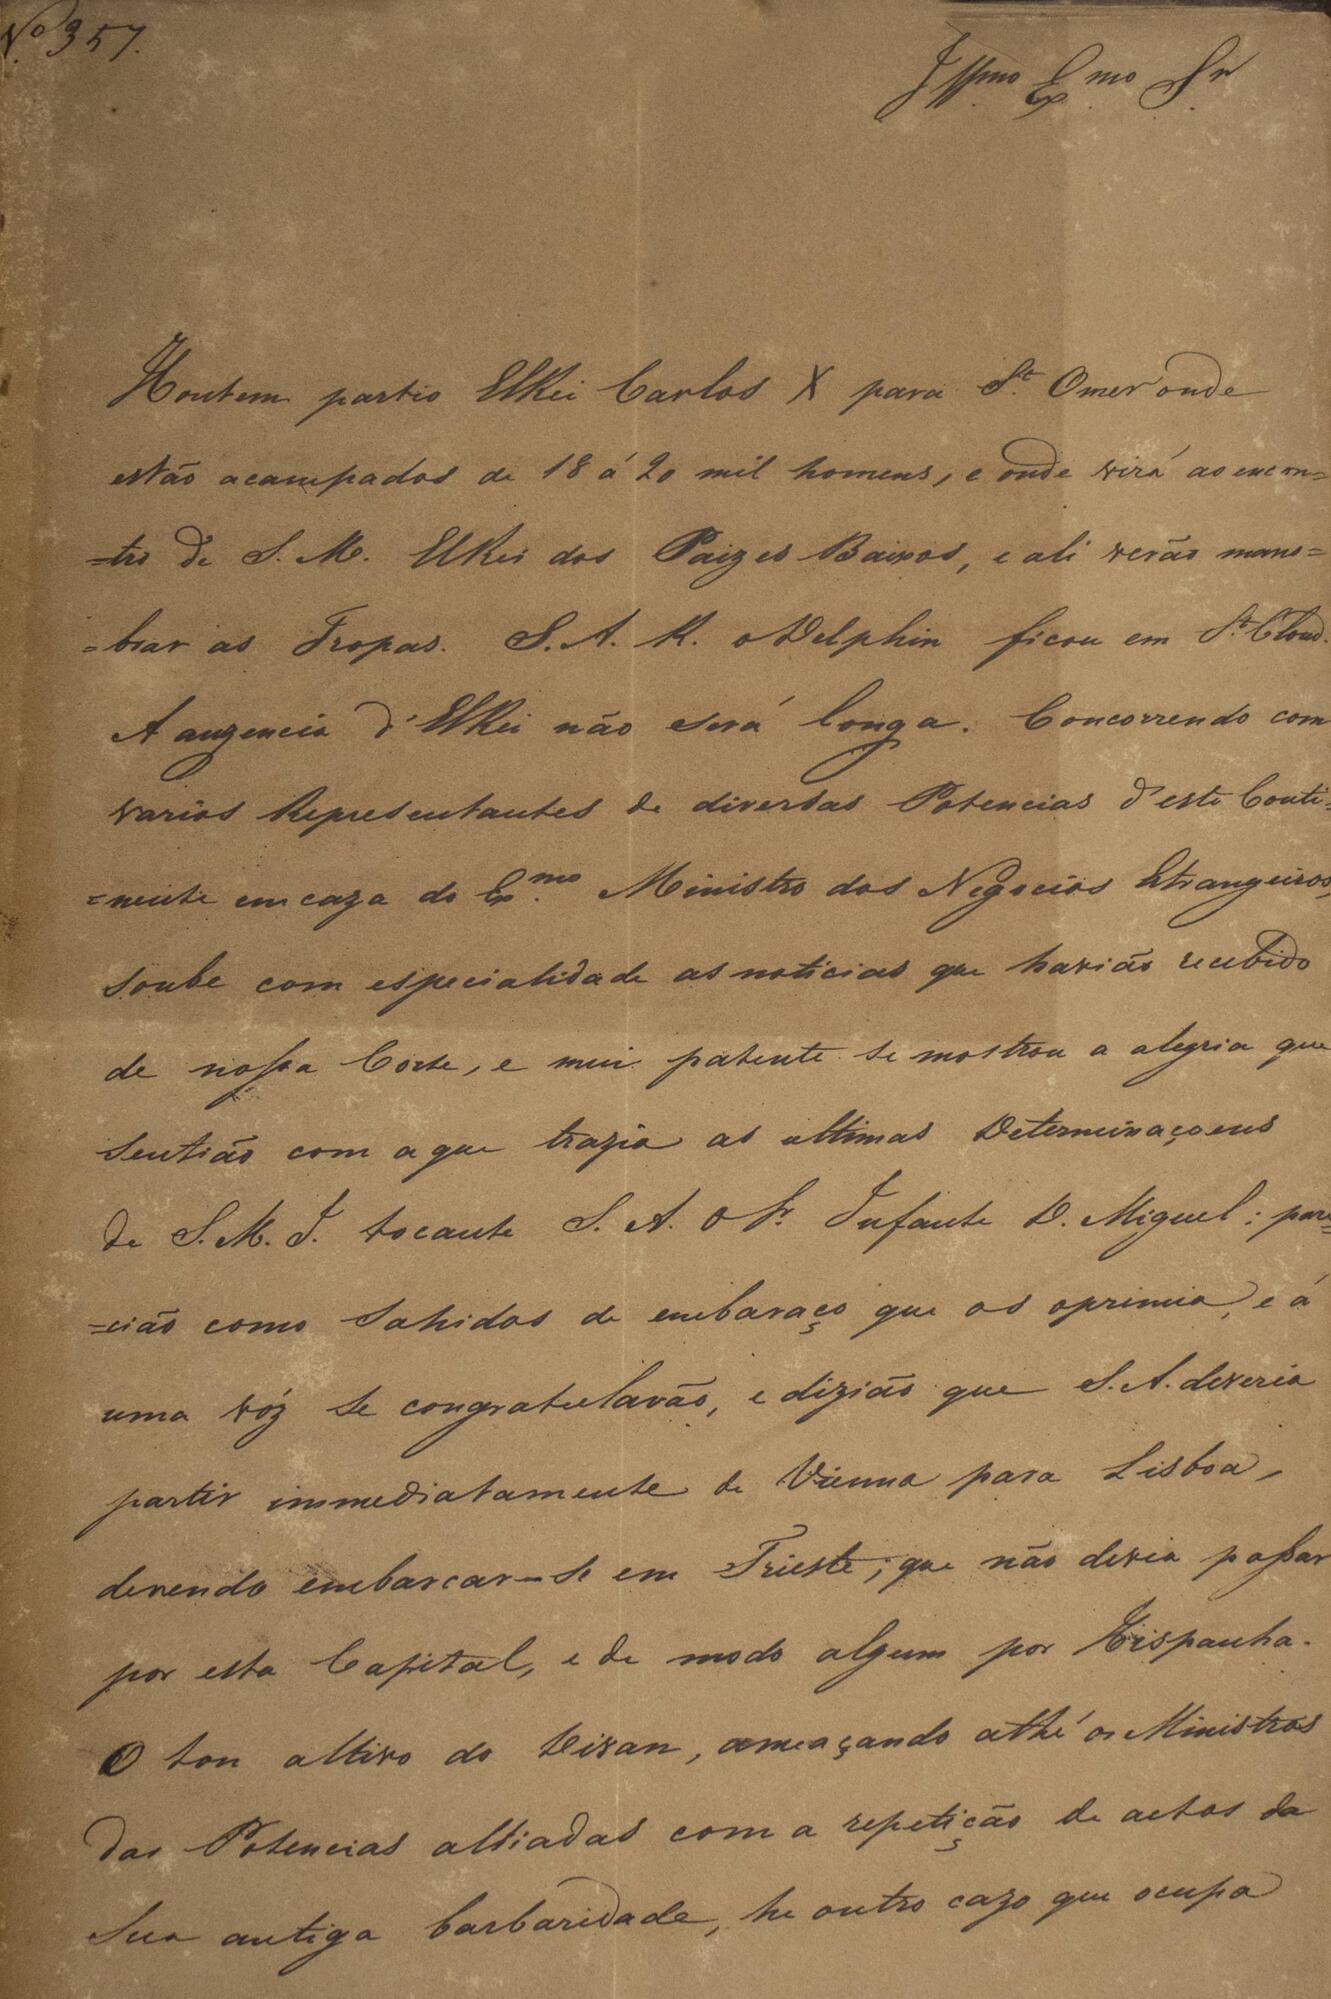 Nº 357.
Illmo Exmo Sr
Hontem partio ElRei Carlos X para St. Omer onde
estão acampados de 18 á 20 mil homens, e onde virá ao encon=
=tro de S. M. ElRei dos Paizes Baixos, e ali verão mano=
=brar as Tropas. S. A. R. o Delphin ficou em St. Cloud.
A auzencia d'ElRei não será longa. Concorrendo com
varios Representantes de diversas Potencias d'este Conti=
=nente em caza do Exmo. Ministro dos Negocios Estrangeiros,
soube com especialidade as noticias que havião recebido
de nossa Corte, e mui patente se mostrou a alegria que
sentião com a que trazia as ultimas Determinaçoens
de S. M. I. tocante S. A. o Sr. Infante D. Miguel; pare=
=cião como sahidos de embaraço que os oprimia, e á
uma vóz se congratulavão, e dizião que S. A. deveria
partir immediatamente de Vienna para Lisboa,
devendo embarcar-se em Trieste; que não devia passar
por esta Capital, e de modo algum por Hispanha.
O ton altivo do Divan, ameaçando athé os Ministros
das Potencias alliadas com a repetição de actos da
sua antiga barbaridade, he outro cazo que ocupa